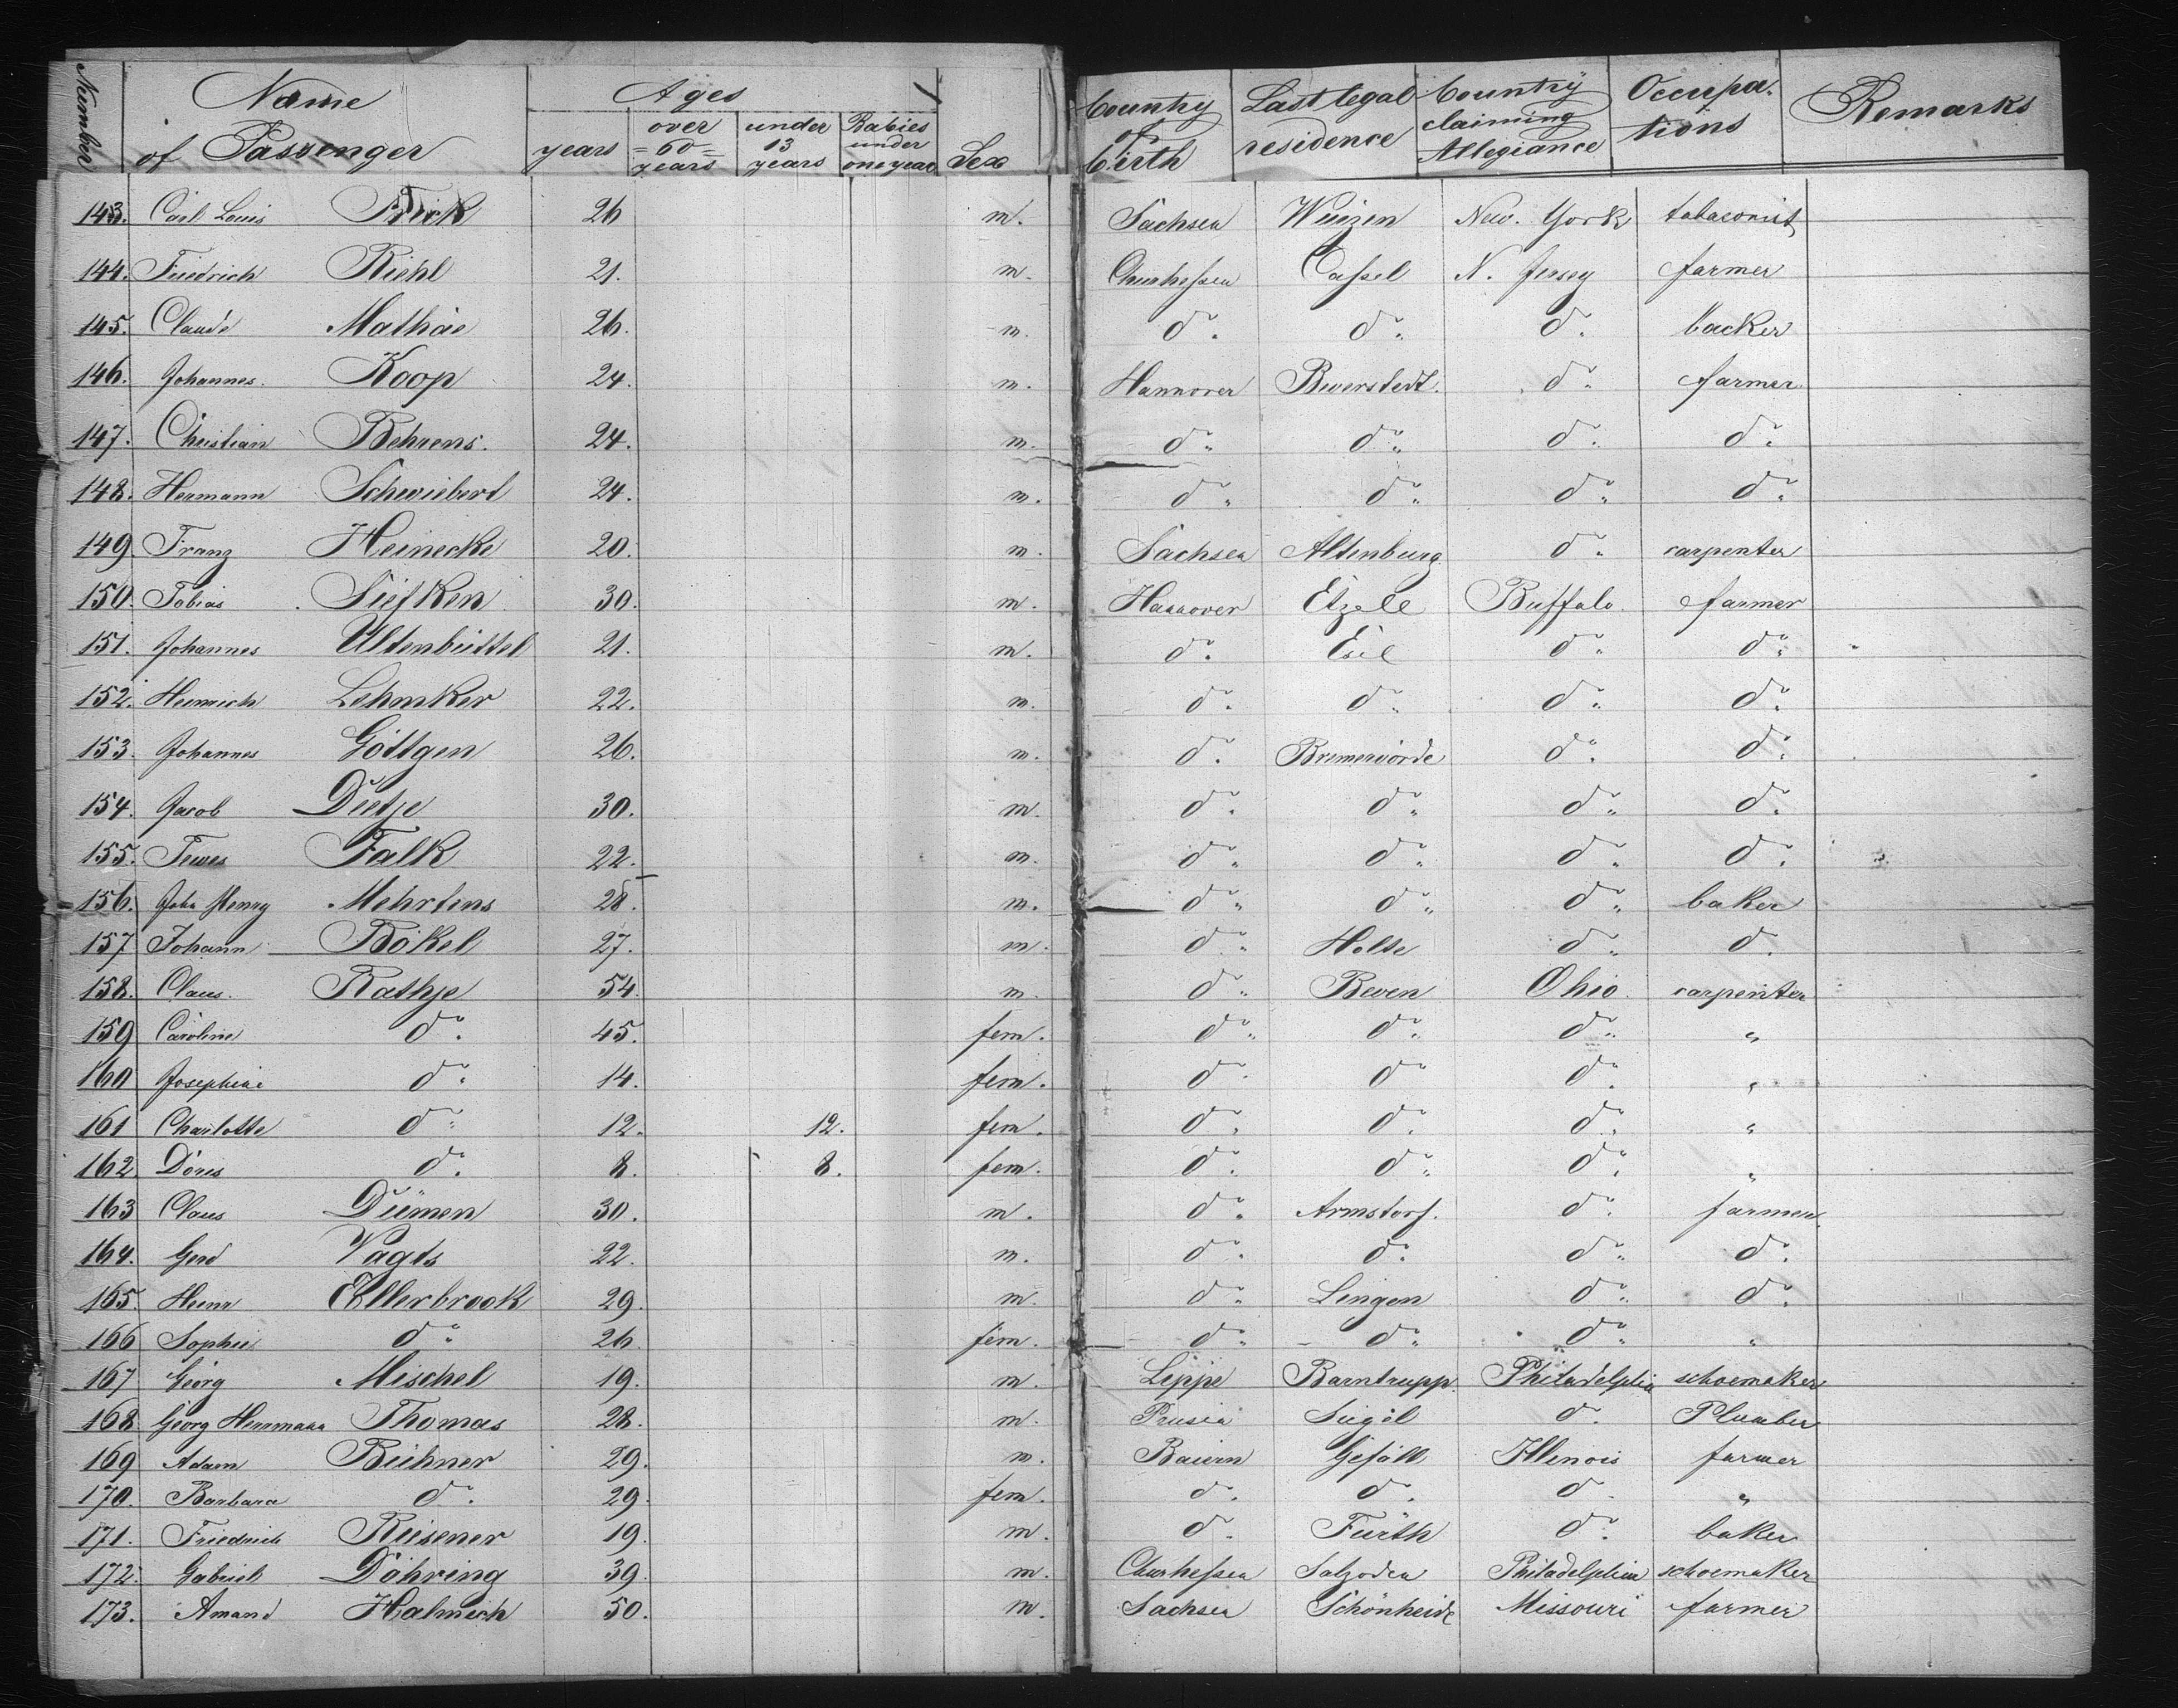 Number Name of Passenger Ages years over 60 years under 13 years Babies under one year Sex Country of birth Last legal residence Country claiming Allegiance Occupations Remarks
143. Carl Louis Frick 26 m. Sachsen New. York tabaconist
144. Friedrich Riehl 21. m. Churhessen Cassel N. Jersey farmer
145. Claude Mathäe 26. m. do. do. do. backer
146. Johannes. Koop 24. m. Hannover Beverstedt. do. farmer
147. Christian Behrens. 24. m. do. do. do. do.
148. Hermann Schwiebert 24. m. do. do. do. do.
149 Franz Heinecke 20. m. Sachsen Altenburg do. carpenter
150. Tobias Siefken 30. m. Hannover Etzele Buffalo farmer
151. Johannes Ultenbüttel 21. m. do. do. do.
152. Heinrich Lehmker 22. m. do. do. do. do.
153. Johannes Göttgen 26. m. do. Bremervörde do. do.
154. Jacob Dietje 30. m. do. do. do. do.
155. Tewes Falk 22. m. do. do. do. do.
156. John Henry Mehrtens 28. m. do. do. do. baker
157 Johann Bökel 27. m. do. Holte do. do.
158. Claus. Rathje 54. m. do. Beven Ohio. carpenter
159 Caroline do. 45. fem. do. do. do. "
160 Josephine do. 14. fem. do. do do. "
161 Charlotte do. 12. 12. fem. do. do. do. "
162. Dores do. 8. 8. fem. do. do. do. "
163 Claus Dümen 30. m. do. Armstorf. do. farmer
164. Gerd Vagts 22. m. do. do. do. do.
165. Heinr Ellerbrook 29. m. do. Lingen do. do.
166 Sophie do. 26. fem. do. do. do. "
167 Georg Mischel 19. m. Lippe Barntrupp. Philadelphia schoemaker
168. Georg Herrmann Thomas 28. m. Prusia do. Plumber
169 Adam Bühner 29. m. Baiern Gefäll Illenois farmer
170. Barbara do. 29. fem. do. do. do "
171. Friedrich Riesener 19. m. do. Fürth do. baker
172. Gabriel Döhring 39. m. Churhessen Salzoden Philadelphia schoemaker
173. Amand Halmich 50. m. Sachsen Schönheide Missouri farmer